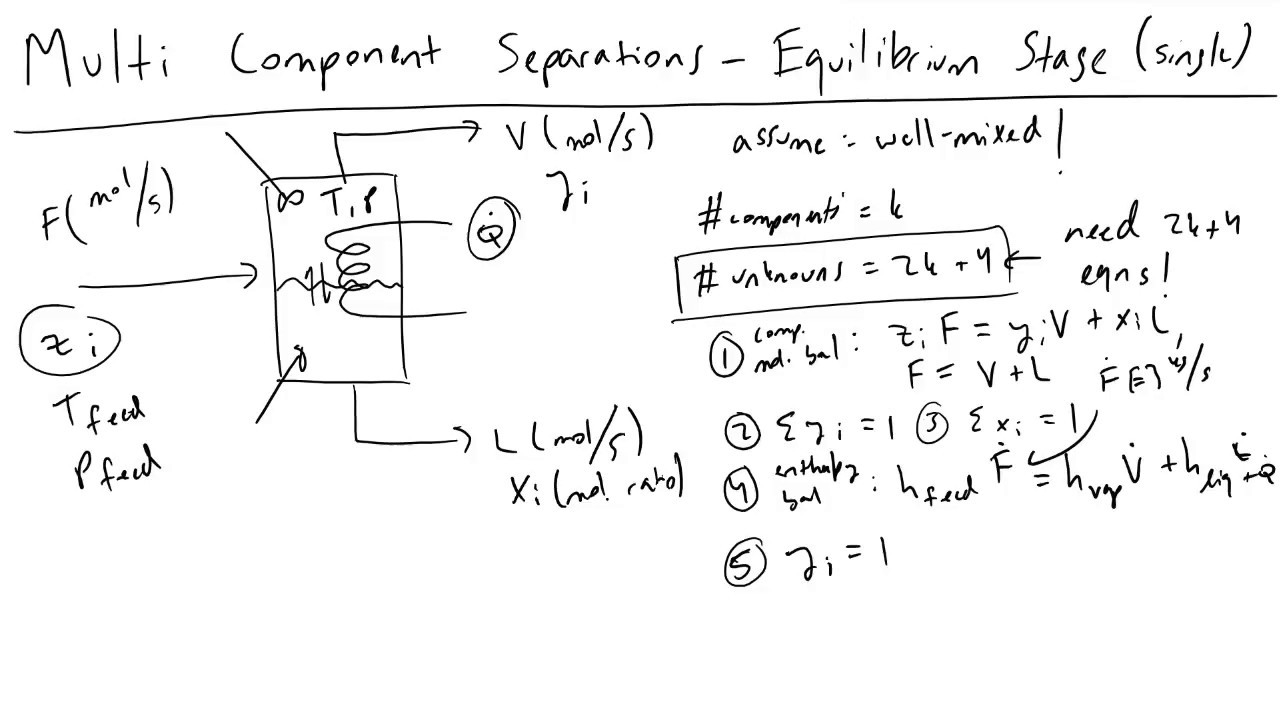 Multi Component Separations - Equilibrium Stage (single)
F(mol/s)
zi
Tfeed
Pfeed
T, P
Q̇
V (mol/s)
yi
L (mol/s)
xi (mol ratio)
assume: well-mixed!
# components = k
# unknowns = 2k + 4 ← need 2k+4 eqns!
① comp. mol. bal: zi F = yi V + xi L
F = V + L
② Σ yi = 1 ③ Σ xi = 1
④ enthalpy bal: hfeed Ḟ = hvap V̇ + hliq L̇ + Q̇
⑤ yi = 1